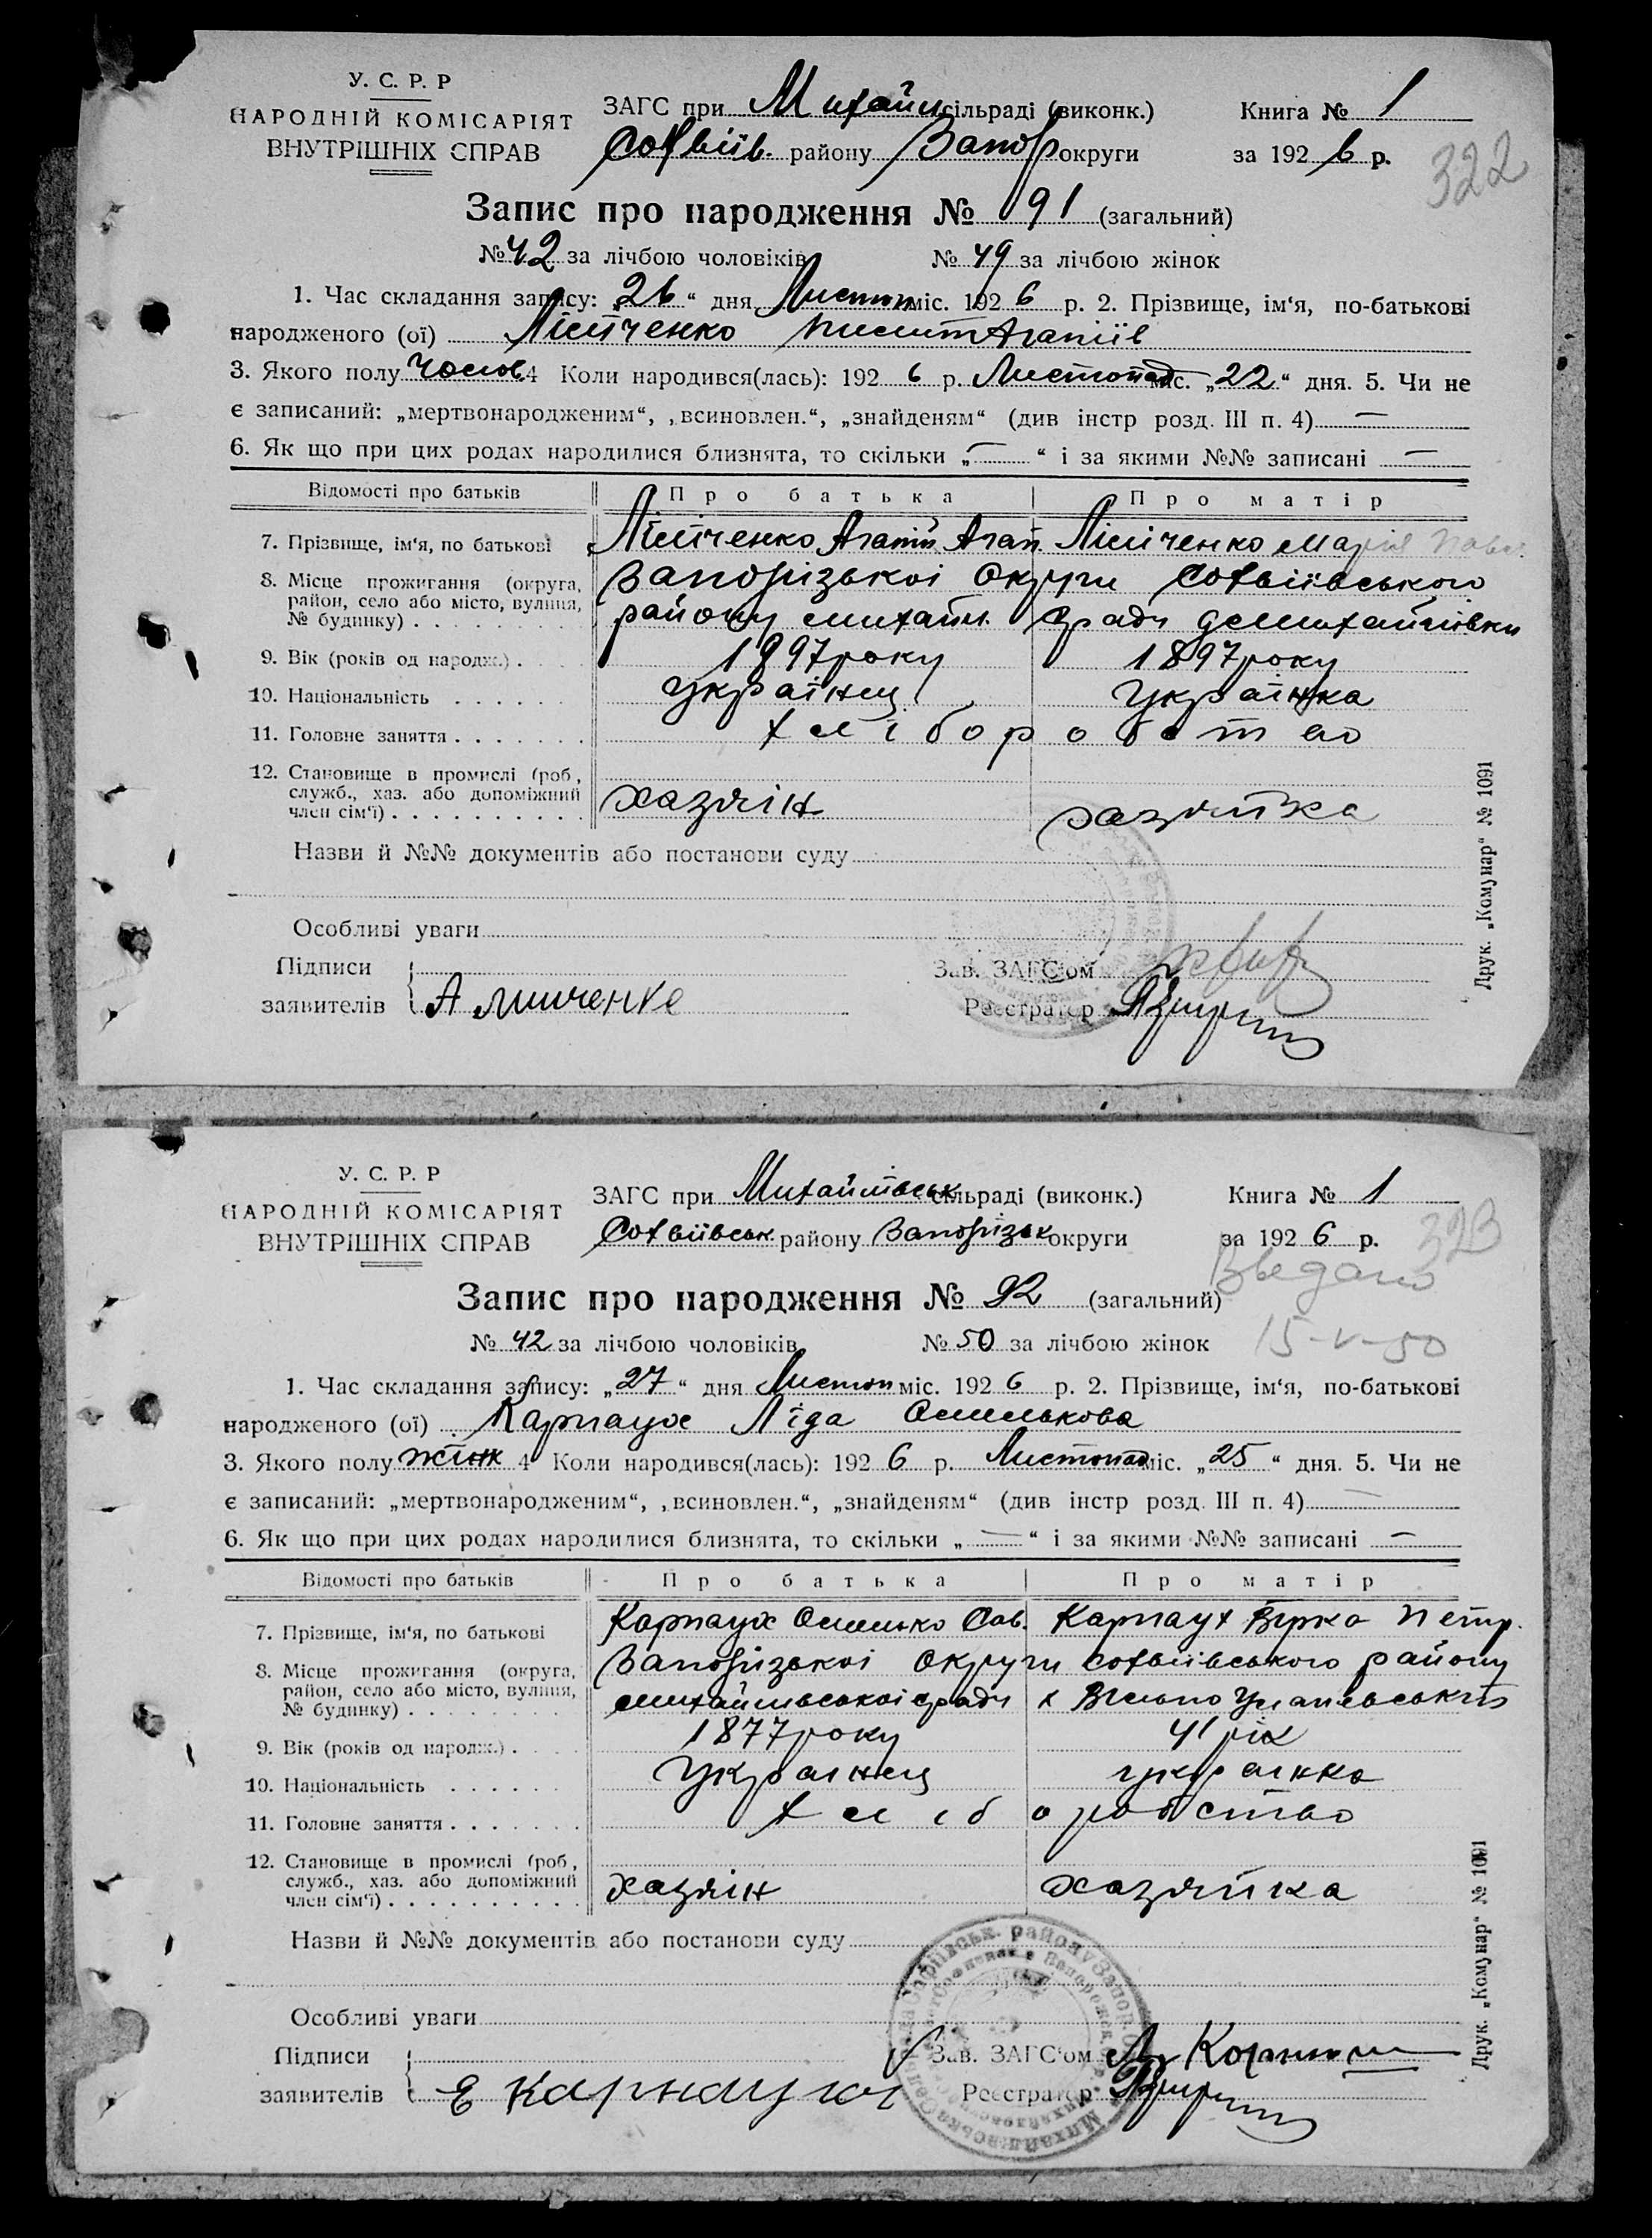 У. С. Р. Р
НАРОДНІЙ КОМІСАРІЯТ
ВНУТРІШНІХ СПРАВ
ЗАГС при Михайл сільраді (виконк.)
Софіїв. району Запор округи
Книга № 1
за 1926 р.
322
Запис про народження № 91 (загальний)
№ 42 за лічбою чоловіків № 49 за лічбою жінок
1. Час складання запису: „26“ дня Листоп міс. 1926 р. 2. Прізвище, ім‘я, по-батькові
народженого (ої) Агапіїв
3. Якого полу Чолов. 4 Коли народився(лась): 1926 р. Листопад міс. „22“ дня. 5. Чи не
є записаний: „мертвонародженим“, „всиновлен.“, „знайденям“ (див інстр розд. III п. 4) —
6. Як що при цих родах народилися близнята, то скільки „—“ і за якими №№ записані —
Відомості про батьків Про батька Про матір
7. Прізвище, ім‘я, по батькові Агапій Агап. Марія
8. Місце прожигання (округа, район, село або місто, вулиця, № будинку) Запорізькоі Округи Софіївського
району михайл. с/ради
9. Вік (років од народж.) 1897 року 1897 року
10. Національність українец українка
11. Головне заняття хліборобство
12. Становище в промислі (роб, служб., хаз. або допоміжний член сім‘ї) хазяін хазяйка
Назви й №№ документів або постанови суду
Особливі уваги
Підписи
заявителів
Зав. ЗАГС‘ом
Реєстратор
Друк. „Комунар“ № 1091
У. С. Р. Р
НАРОДНІЙ КОМІСАРІЯТ
ВНУТРІШНІХ СПРАВ
ЗАГС при Михайлівськ сільраді (виконк.)
Софіївськ. району Запорізьк округи
Книга № 1
за 1926 р.
323
15-V-50
Запис про народження № 92 (загальний)
№ 42 за лічбою чоловіків № 50 за лічбою жінок
1. Час складання запису: „27“ дня Листоп міс. 1926 р. 2. Прізвище, ім‘я, по-батькові
народженого (ої) Карнаух Ліда Омелькова
3. Якого полу жінж 4 Коли народився(лась): 1926 р. Листопад міс. „25“ дня. 5. Чи не
є записаний: „мертвонародженим“, „всиновлен.“, „знайденям“ (див інстр розд. III п. 4) —
6. Як що при цих родах народилися близнята, то скільки „—“ і за якими №№ записані —
Відомості про батьків Про батька Про матір
7. Прізвище, ім‘я, по батькові Карнаух Омелько Сав. Карнаух Вірка Петр.
8. Місце прожигання (округа, район, село або місто, вулиця, № будинку) Запорізькоі Округи Софіївського району
михайлівськоі с/ради х
9. Вік (років од народж.) 1877 року 41 рік
10. Національність Украінец украінка
11. Головне заняття хліборобство
12. Становище в промислі (роб, служб., хаз. або допоміжний член сім‘ї) хазяін хазяйка
Назви й №№ документів або постанови суду
Особливі уваги
Підписи
заявителів Е Карнаух
Зав. ЗАГС‘ом
Реєстратор
Друк. „Комунар“ № 1091